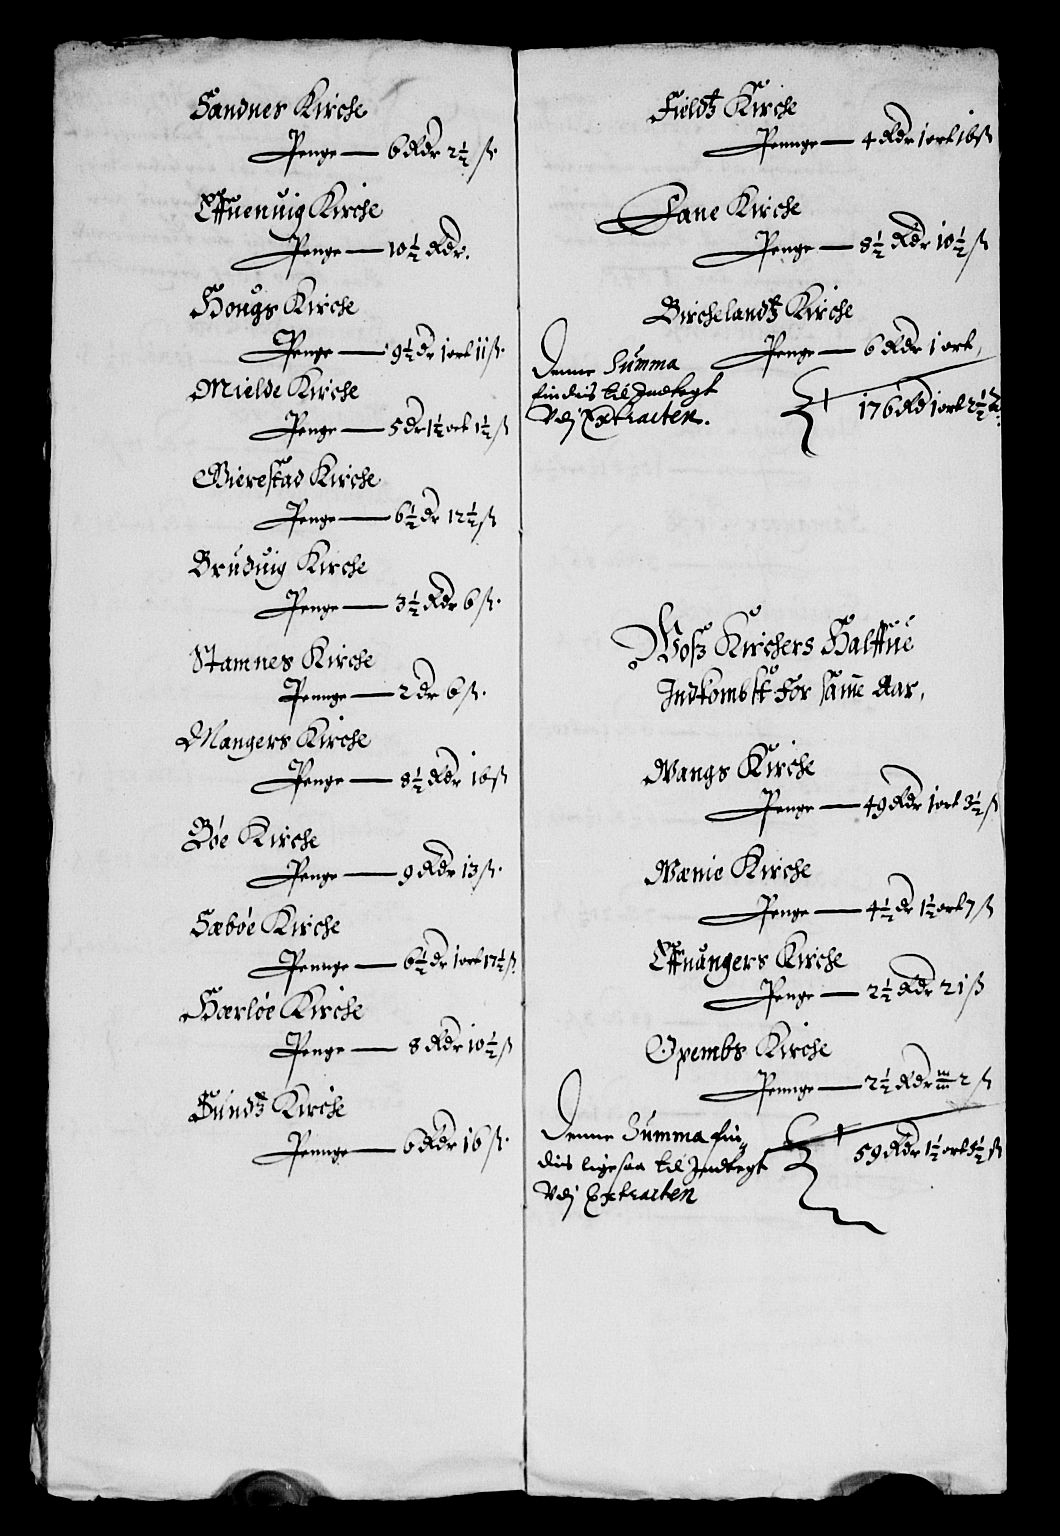 Sandnes Kirche
Penge — 6 Rdr 2½ ß.
Effuenuig Kirche
Penge — 10½ Rdr.
Hougs Kirche
Penge — 9½ dr 1 ort 11 ß.
Mielde Kirche
Penge — 5 dr 1½ ort 1½ ß
Gierestad Kirche
Penge — 6½ dr 12½ ß
Bruduig Kirche
Penge — 3½ Rdr 6 ß.
Stamnes Kirche
Pennge — 2 dr 6 ß.
Mangers Kirche
Penge — 8½ Rdr 16 ß
Bóe Kirche
Penge — 9 Rdr 13 ß.
Sæbóe Kirche
Pennge — 6½ dr 1 ort 17½ ß.
Hærlóe Kirche
Penge — 8 Rdr 10½ ß
Sundtz Kirche
Pennge — 6 Rdr 16 ß.
Fieldtz Kirche
Pennge — 4 Rdr 1 ort 16 ß
Fane Kirche
Penge — 8½ Rdr 10½ ß
Birchelandtz Kirche
Penge — 6 Rdr 1 ort,
Denne Summa
findis til Indtegt
Vdj Extracten.
176 Rd 1 ort 2½ ß.
Wosz Kirchers Halffue
Indkombst for same Aar,
Wangs Kirche
Penge — 49 Rdr 1 ort 3½ ß
Wænie Kirche
Penge — 4½ dr 1½ ort 7 ß
Effuangers Kirche
Penge — 2½ Rdr 21 ß
Opembs Kirche
Pennge — 2½ Rdr 2 ß
Denne Summa fin„
dis ligesaa til Indtegt
Vdj Extracten
59 Rdr 1½ ort 5½ ß